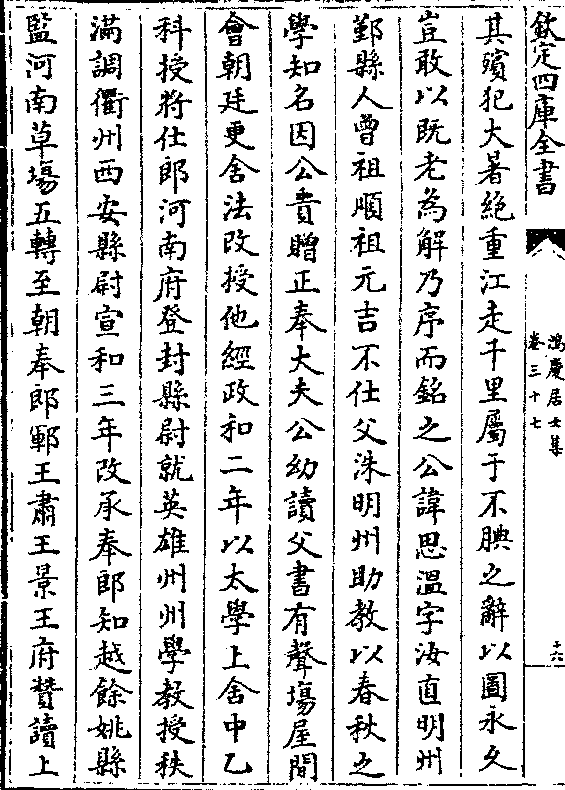 欽定四庫全書
鴻慶居士集
卷三十七
十六
其殯犯大暑絶重江走千里屬于不腆之辭以圖永久
豈敢以既老為解乃序而銘之公諱思温字汝直明州
鄞縣人曾祖順祖元吉不仕父洙明州助教以春秋之
學知名因公貴贈正奉大夫公幼讀父書有聲塲屋間
會朝廷更舍法改授他經政和二年以太學上舍中乙
科授將仕郎河南府登封縣尉就英雄州州學教授秩
滿調衢州西安縣尉宣和三年改承奉郎知越餘姚縣
監河南草塲五轉至朝奉郎鄆王肅王景王府賛讀上